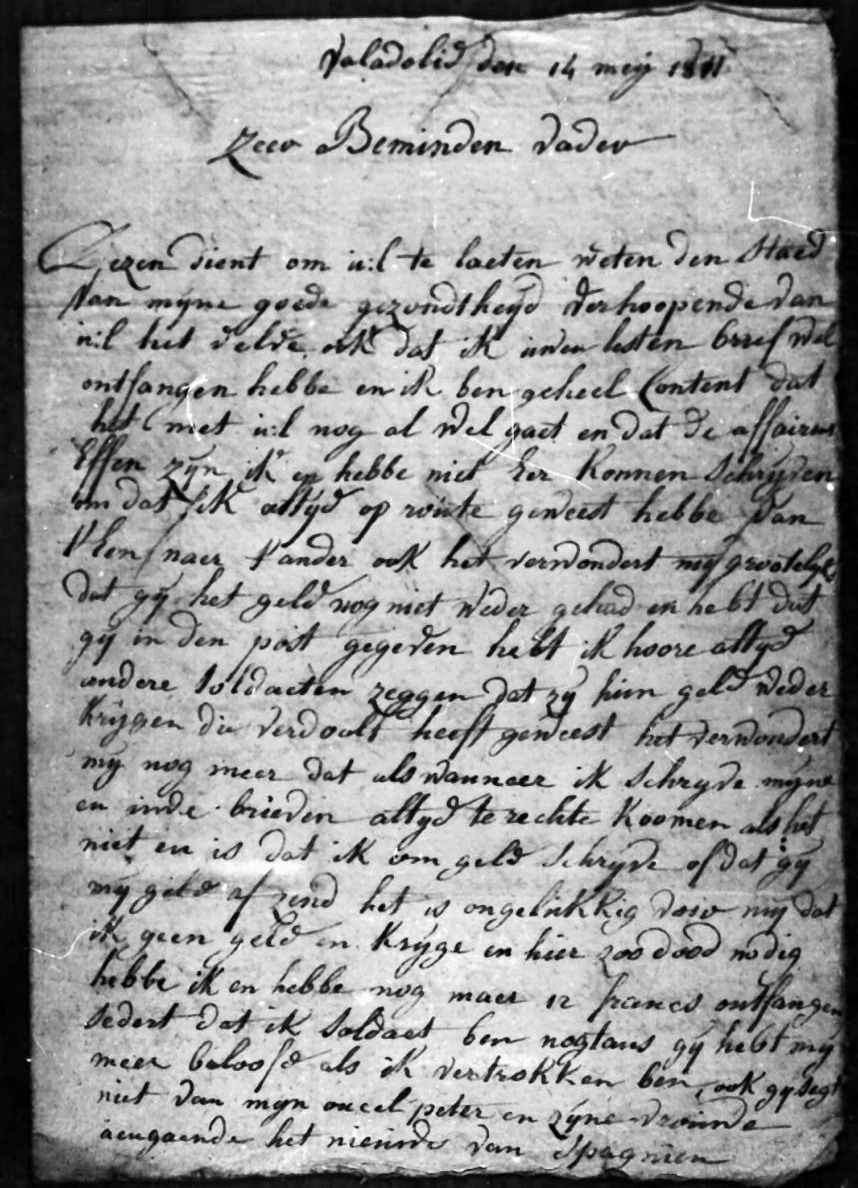 Valadolid den 14 meij 1811
Zeer Beminden Vader
Dezen dient om u:l te laeten weten den staed
van mijne goede gezondtheijd verhoopende van
u:l het velve ook dat ik uwen lesten brief wel
ontfangen hebbe en ik ben geheel Content dat
het met u:l nog al wel gaet en dat de affairens
Effen zijn ik en hebbe niet Eer konnen schrijven
om dat ik altijd op route geweest hebbe van
t'Een naer t'ander ook het verwondert mij grootelijks
dat gij het geld nog niet weder gehad en hebt dat
gij in den post gegeven hebt ik hoore altijd
andere soldaeten zeggen dat zij hun geld weder
krijgen die verdoolt heeft geweest het verwondert
mij nog meer dat als wanneer ik schryve mijne
en uwe brieven altyd te rechte koomen als het
niet en is dat ik om geld schryve of dat gij
mij geld af zend het is ongelukkig voor mij dat
ik geen geld en krijge en hier zoo dood nodig
hebbe ik en hebbe nog maer 12 francs ontfangen
sedert dat ik soldaet ben nogtans gij hebt mij
meer beloofd als ik vertrokken ben, ook gij segt
niet van mijn oncel peter en zijne vrouwe
aengaende het nieuws van Spagnien